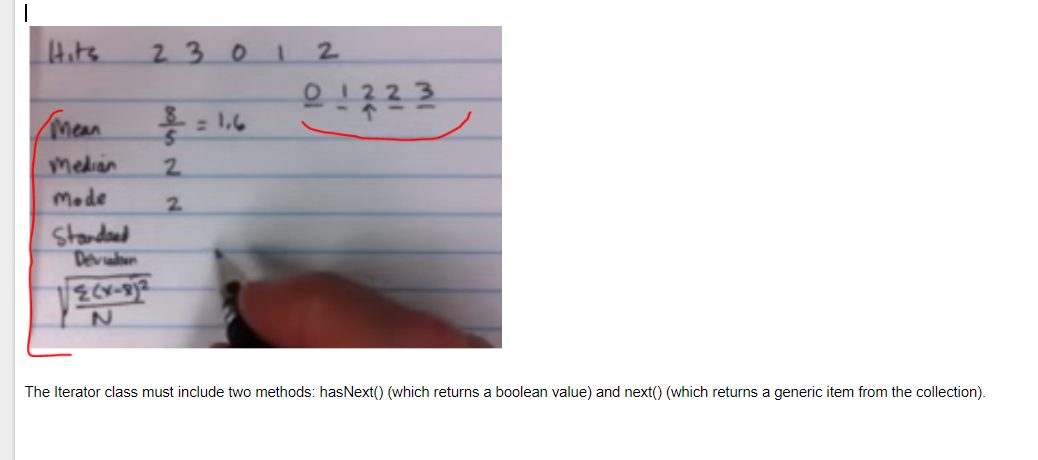 Hits 2 3 0 1 2
0 1 2 2 3
Mean 8/5 = 1.6
Median 2
Mode 2
Standard
Deviation
√Σ(x-x̄)²
N
The Iterator class must include two methods: hasNext() (which returns a boolean value) and next() (which returns a generic item from the collection).